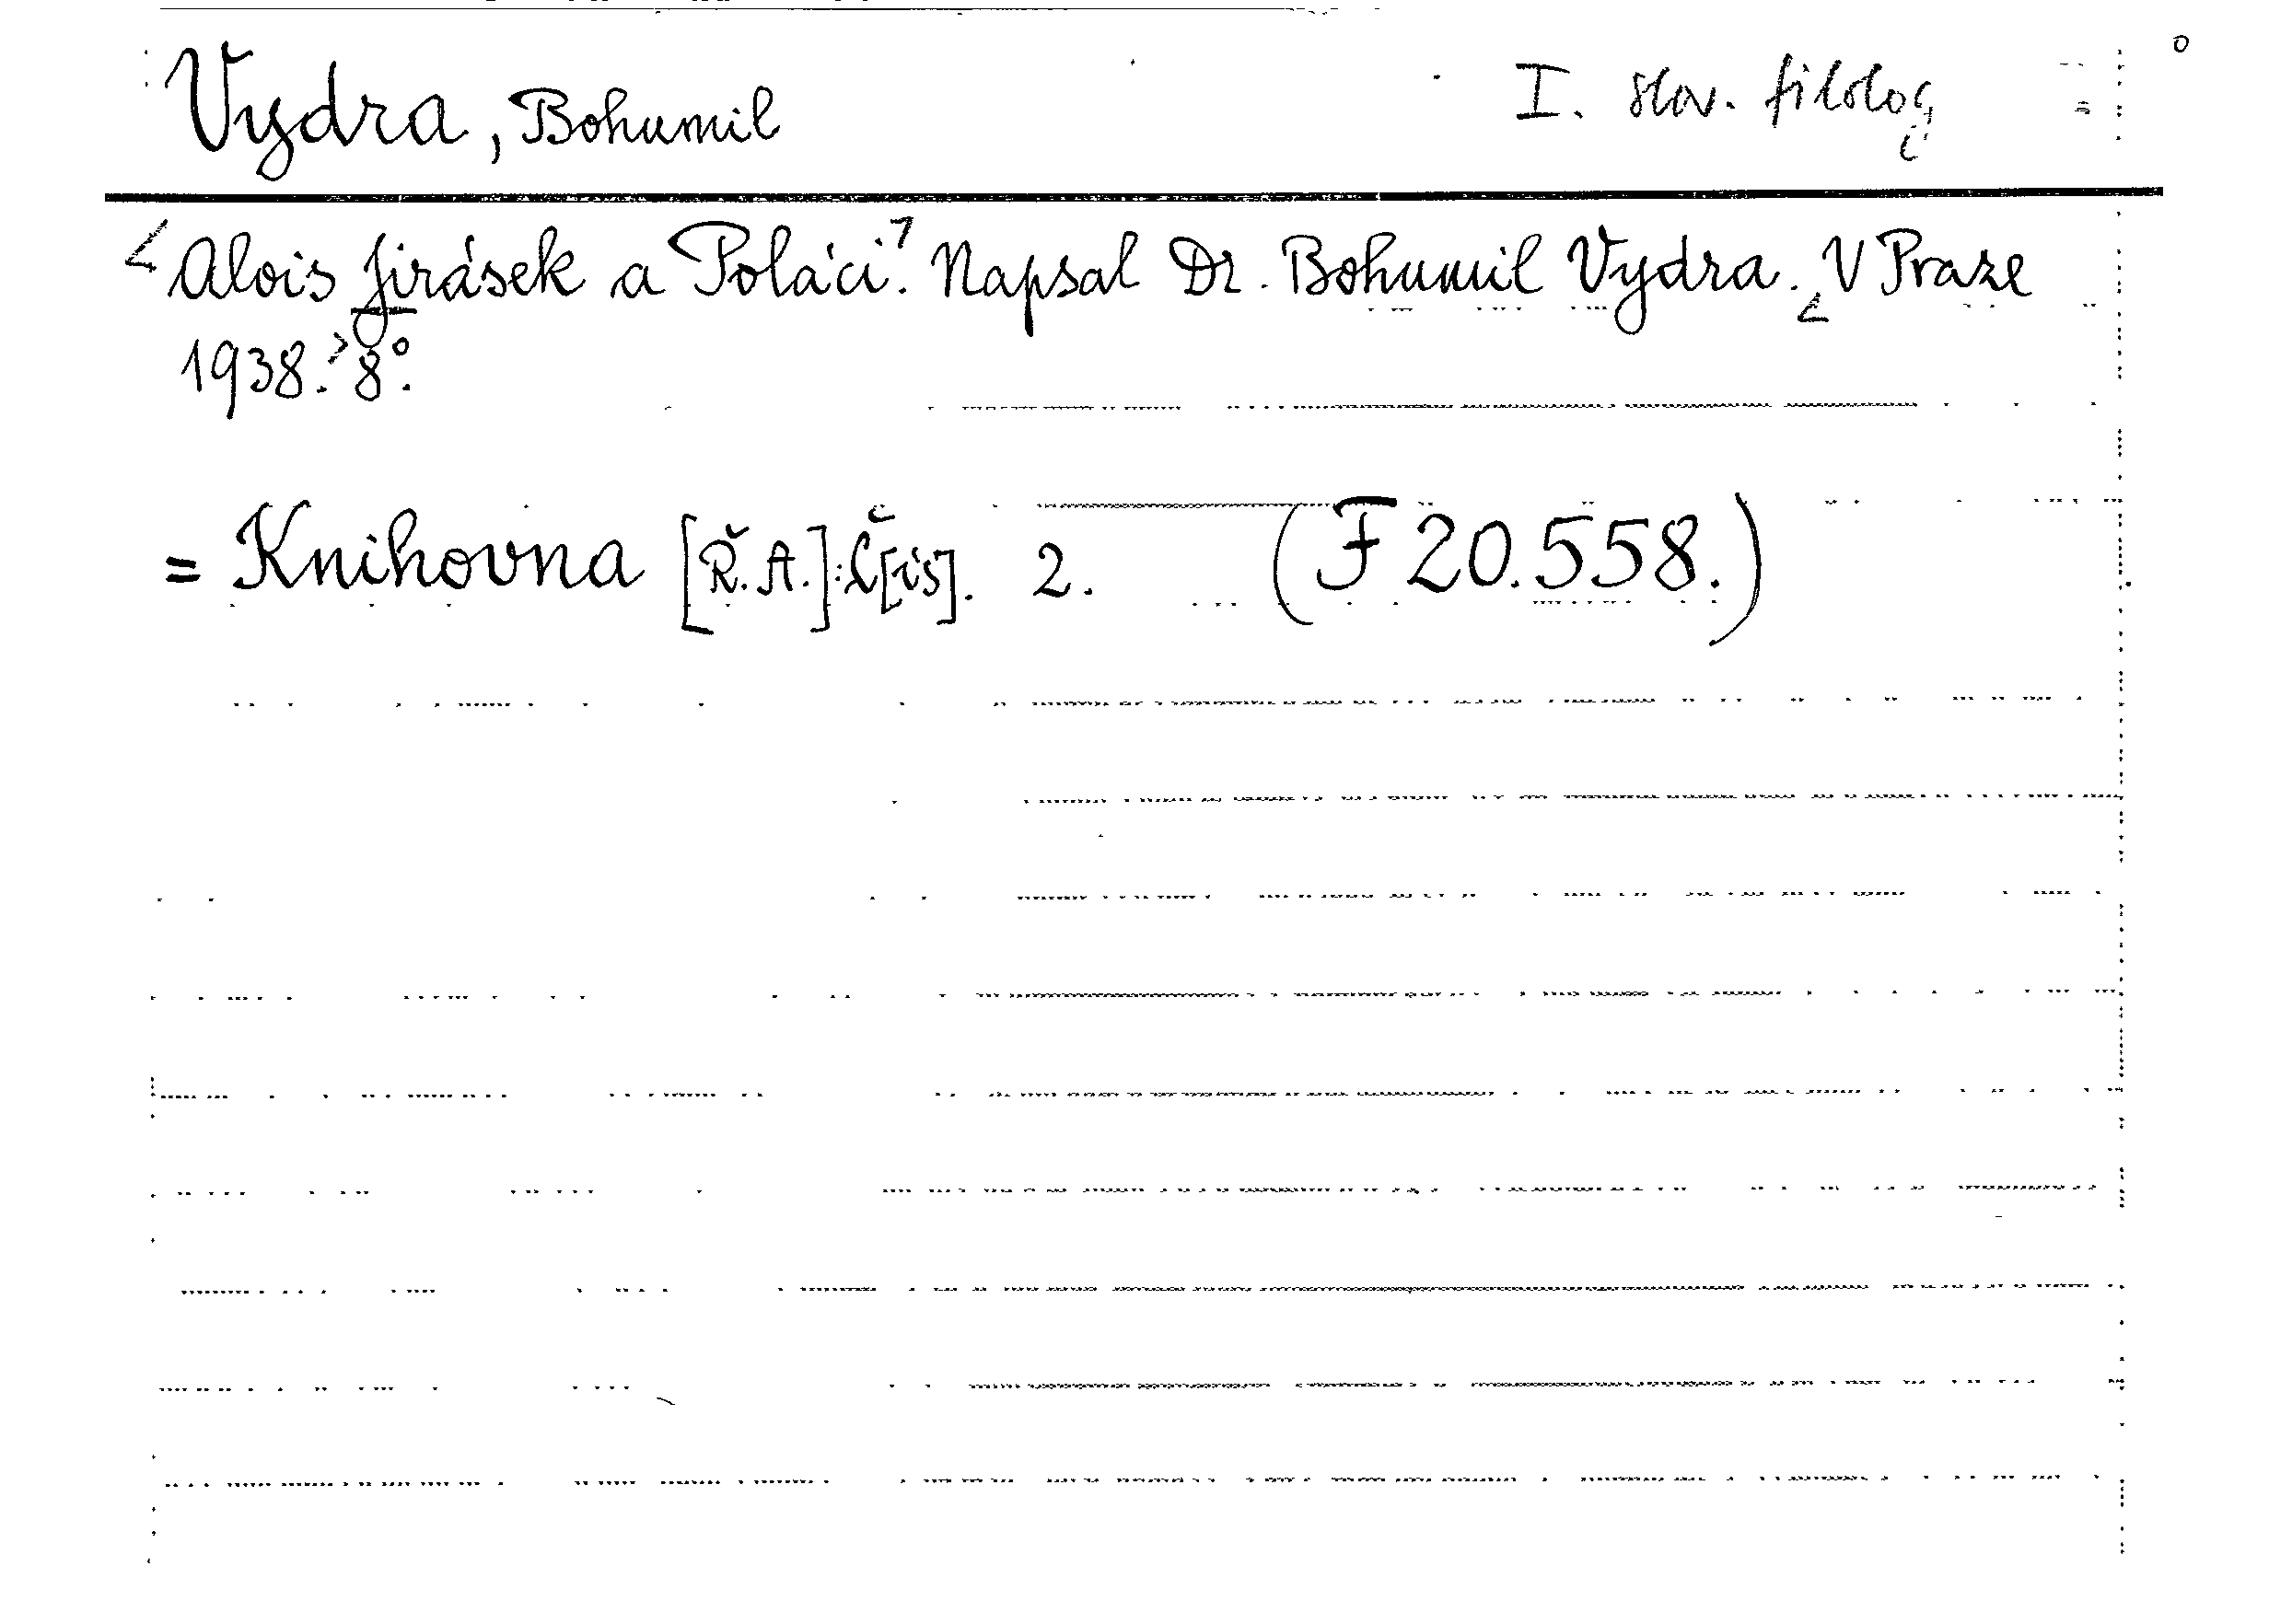 Vydra, Bohumil
I. slov. filolog
<Alois Jirásek a Poláci.> Napsal Dr. Bohumil Vydra. <V Praze
1938.> 8°.
= Knihovna [Ř. A.]: Č[ís]. 2. (F 20.558.)